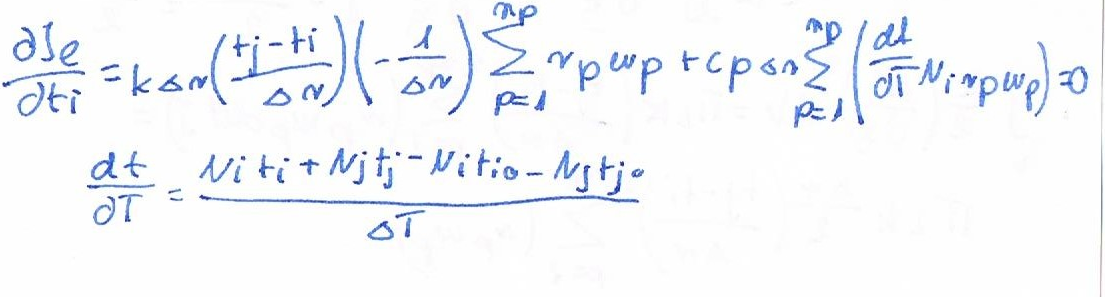 ∂Je/∂ti = kΔr((tj-ti)/Δr)(-1/Δr) Σ_{p=1}^{np} rp wp + cρΔr Σ_{p=1}^{np} (dt/∂T Ni rp wp) = 0
dt/∂T = (Ni ti + Nj tj - Ni tio - Nj tjo)/ΔT